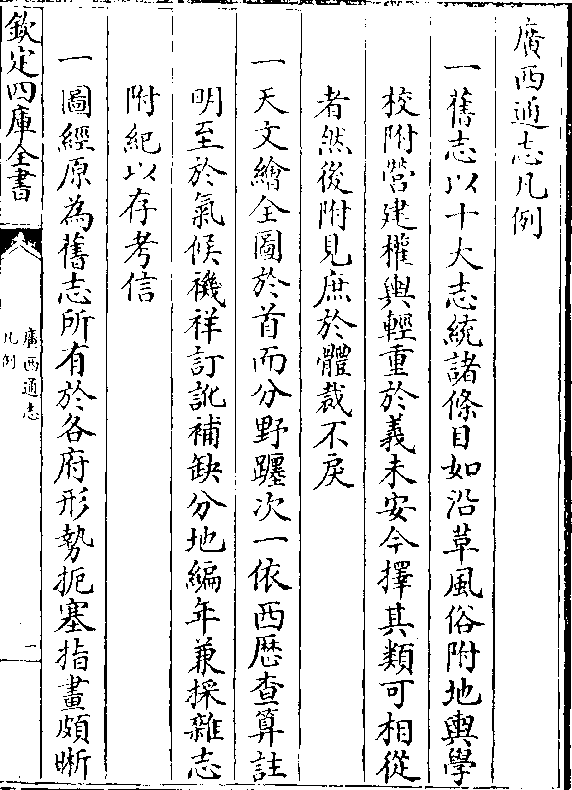 廣西通志凡例
一舊志以十大志統諸條目如沿革風俗附地輿學
校附營建權輿輕重於義未安今擇其類可相從
者然後附見庶於體裁不戾
一天文繪全圖於首而分野躔次一依西歷查算註
明至於氣候禨祥訂訛補缺分地編年兼採雜志
附紀以存考信
一圖經原為舊志所有於各府形勢扼塞指畫頗晰
欽定四庫全書
廣西通志
凡例
一